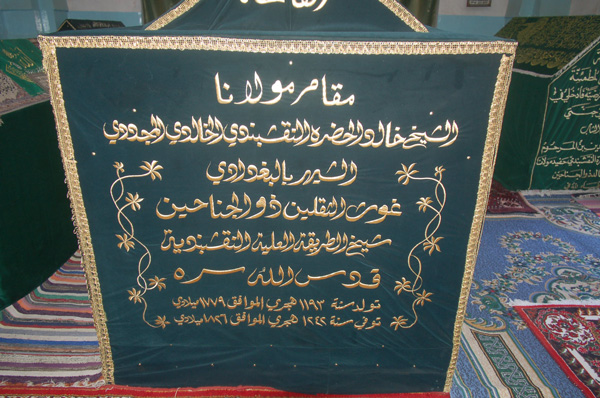 مقام مولانا
الشيخ خالد الحضره النقشبندي الخالدي المجددي
الشهير بالبغدادي
غوث الثقلين ذو الجناحين
شيخ الطريقة العلية النقشبندية
قدس الله سره
تولد سنة ١١٩٣ هجري الموافق ١٧٧٩ ميلادي
توفي سنة ١٢٤٢ هجري الموافق ١٨٢٦ ميلادي